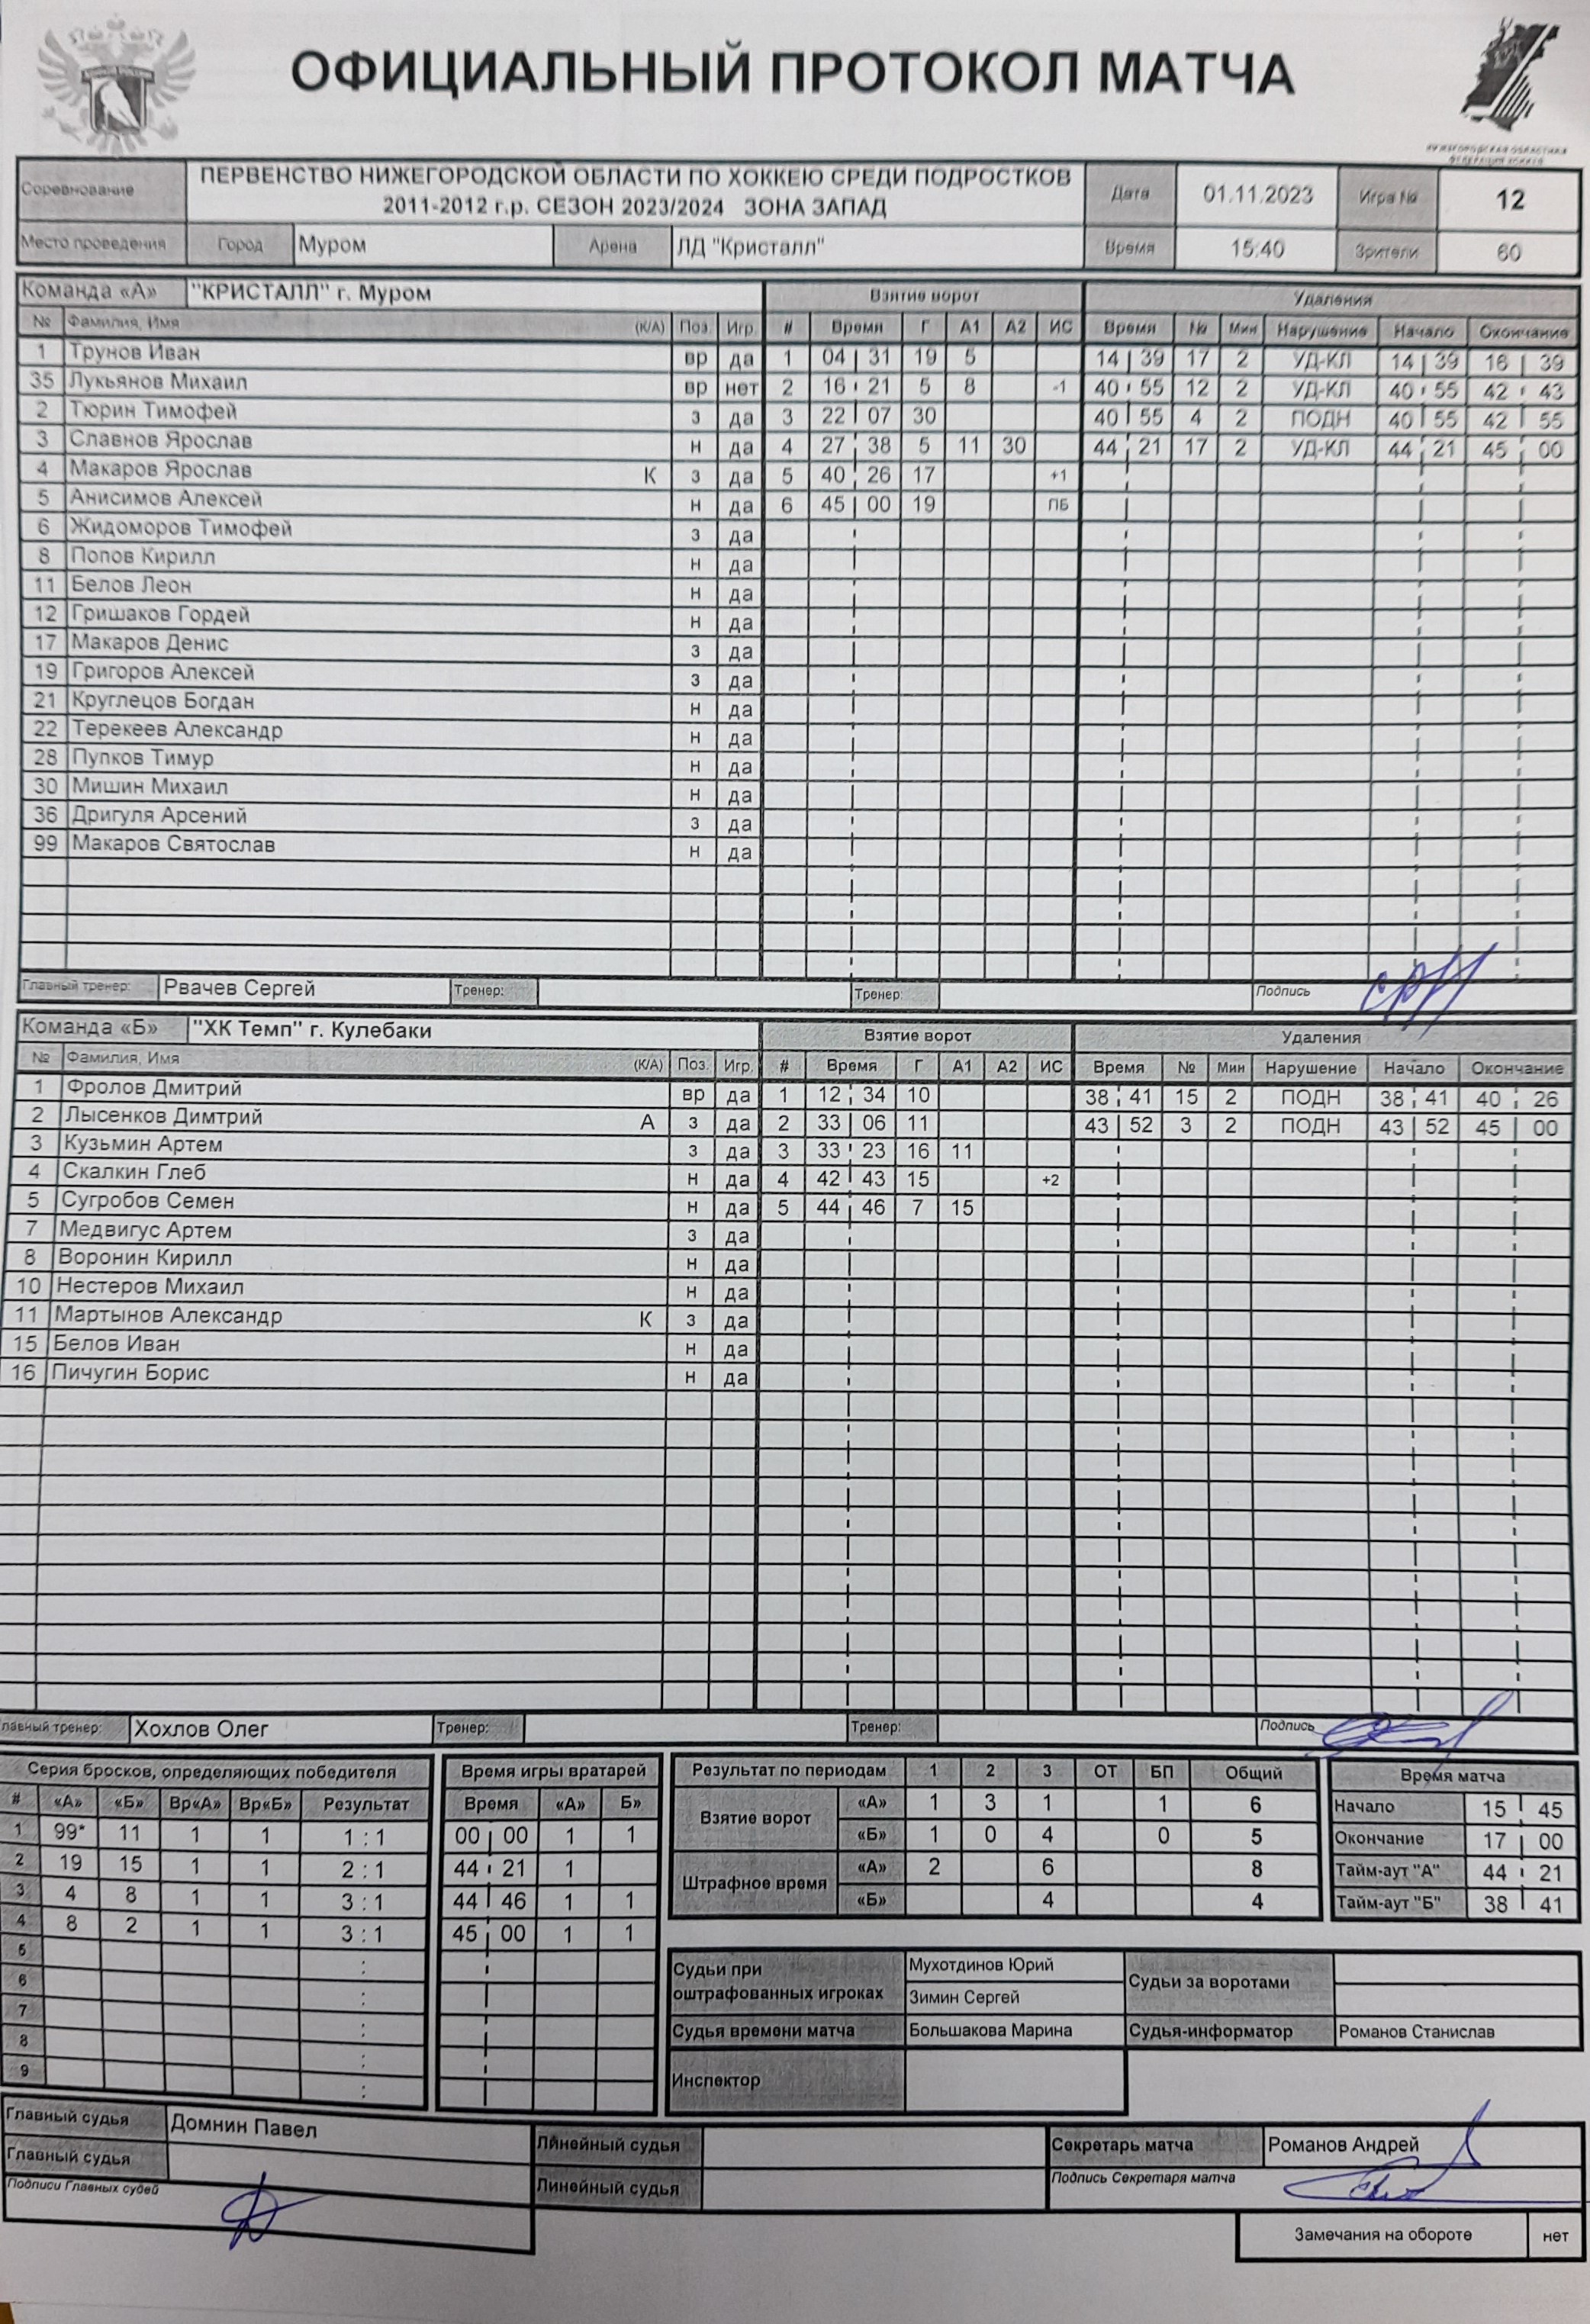 ОФИЦИАЛЬНЫЙ ПРОТОКОЛ МАТЧА
Соревнование ПЕРВЕНСТВО НИЖЕГОРОДСКОЙ ОБЛАСТИ ПО ХОККЕЮ СРЕДИ ПОДРОСТКОВ Дата 01.11.2023 Игра № 12
2011-2012 г.р. СЕЗОН 2023/2024 ЗОНА ЗАПАД
Место проведения Город Муром Арена ЛД "Кристалл" Время 15:40 Зрители 60
Команда «А» "КРИСТАЛЛ" г. Муром Взятие ворот Удаления
№ Фамилия, Имя (К/А) Поз. Игр. # Время Г А1 А2 ИС Время № Мин Нарушение Начало Окончание
1 Трунов Иван вр да 1 04 31 19 5 14 39 17 2 УД-КЛ 14 39 16 39
35 Лукьянов Михаил вр нет 2 16 21 5 8 -1 40 55 12 2 УД-КЛ 40 55 42 43
2 Тюрин Тимофей З да 3 22 07 30 40 55 4 2 ПОДН 40 55 42 55
3 Славнов Ярослав Н да 4 27 38 5 11 30 44 21 17 2 УД-КЛ 44 21 45 00
4 Макаров Ярослав К З да 5 40 26 17 +1
5 Анисимов Алексей Н да 6 45 00 19 ПБ
6 Жидоморов Тимофей З да
8 Попов Кирилл Н да
11 Белов Леон Н да
12 Гришаков Гордей Н да
17 Макаров Денис З да
19 Григоров Алексей З да
21 Круглецов Богдан Н да
22 Терекеев Александр Н да
28 Пупков Тимур Н да
30 Мишин Михаил Н да
36 Дригуля Арсений З да
99 Макаров Святослав Н да
Главный тренер: Рвачев Сергей Тренер: Тренер: Подпись
Команда «Б» "ХК Темп" г. Кулебаки Взятие ворот Удаления
№ Фамилия, Имя (К/А) Поз. Игр. # Время Г А1 А2 ИС Время № Мин Нарушение Начало Окончание
1 Фролов Дмитрий вр да 1 12 34 10 38 41 15 2 ПОДН 38 41 40 26
2 Лысенков Димтрий А З да 2 33 06 11 43 52 3 2 ПОДН 43 52 45 00
3 Кузьмин Артем З да 3 33 23 16 11
4 Скалкин Глеб Н да 4 42 43 15 +2
5 Сугробов Семен Н да 5 44 46 7 15
7 Медвигус Артем З да
8 Воронин Кирилл Н да
10 Нестеров Михаил Н да
11 Мартынов Александр К З да
15 Белов Иван Н да
16 Пичугин Борис Н да
лавный тренер: Хохлов Олег Тренер: Тренер: Подпись
Серия бросков, определяющих победителя
# «А» «Б» Вр«А» Вр«Б» Результат
1 99* 11 1 1 1 : 1
2 19 15 1 1 2 : 1
3 4 8 1 1 3 : 1
4 8 2 1 1 3 : 1
5 :
6 :
7 :
8 :
9 :
Время игры вратарей
Время «А» Б»
00 00 1 1
44 21 1
44 46 1 1
45 00 1 1
Результат по периодам 1 2 3 ОТ БП Общий
Взятие ворот «А» 1 3 1 1 6
«Б» 1 0 4 0 5
Штрафное время «А» 2 6 8
«Б» 4 4
Время матча
Начало 15 45
Окончание 17 00
Тайм-аут "А" 44 21
Тайм-аут "Б" 38 41
Судьи при оштрафованных игроках Мухотдинов Юрий Судьи за воротами
Зимин Сергей
Судья времени матча Большакова Марина Судья-информатор Романов Станислав
Инспектор
Главный судья Домнин Павел Линейный судья Секретарь матча Романов Андрей
Главный судья Линейный судья Подпись Секретаря матча
Подписи Главных судей
Замечания на обороте нет